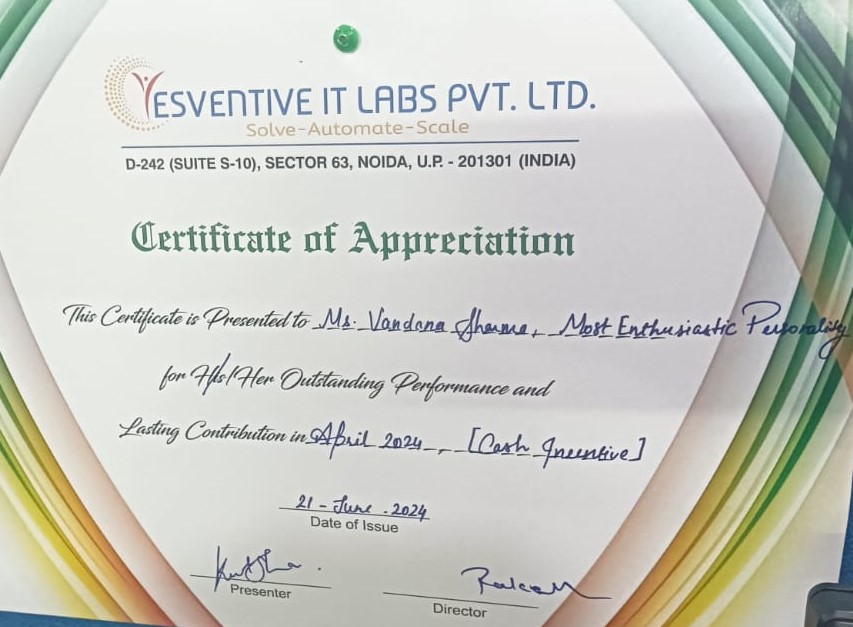 YESVENTIVE IT LABS PVT. LTD.
Solve-Automate-Scale
D-242 (SUITE S-10), SECTOR 63, NOIDA, U.P. - 201301 (INDIA)
Certificate of Appreciation
This Certificate is Presented to Ms. Vandana Sharma, Most Enthusiastic Personality
for His/Her Outstanding Performance and
Lasting Contribution in April 2024, [Cash Incentive]
21 - June . 2024
Date of Issue
Presenter
Director